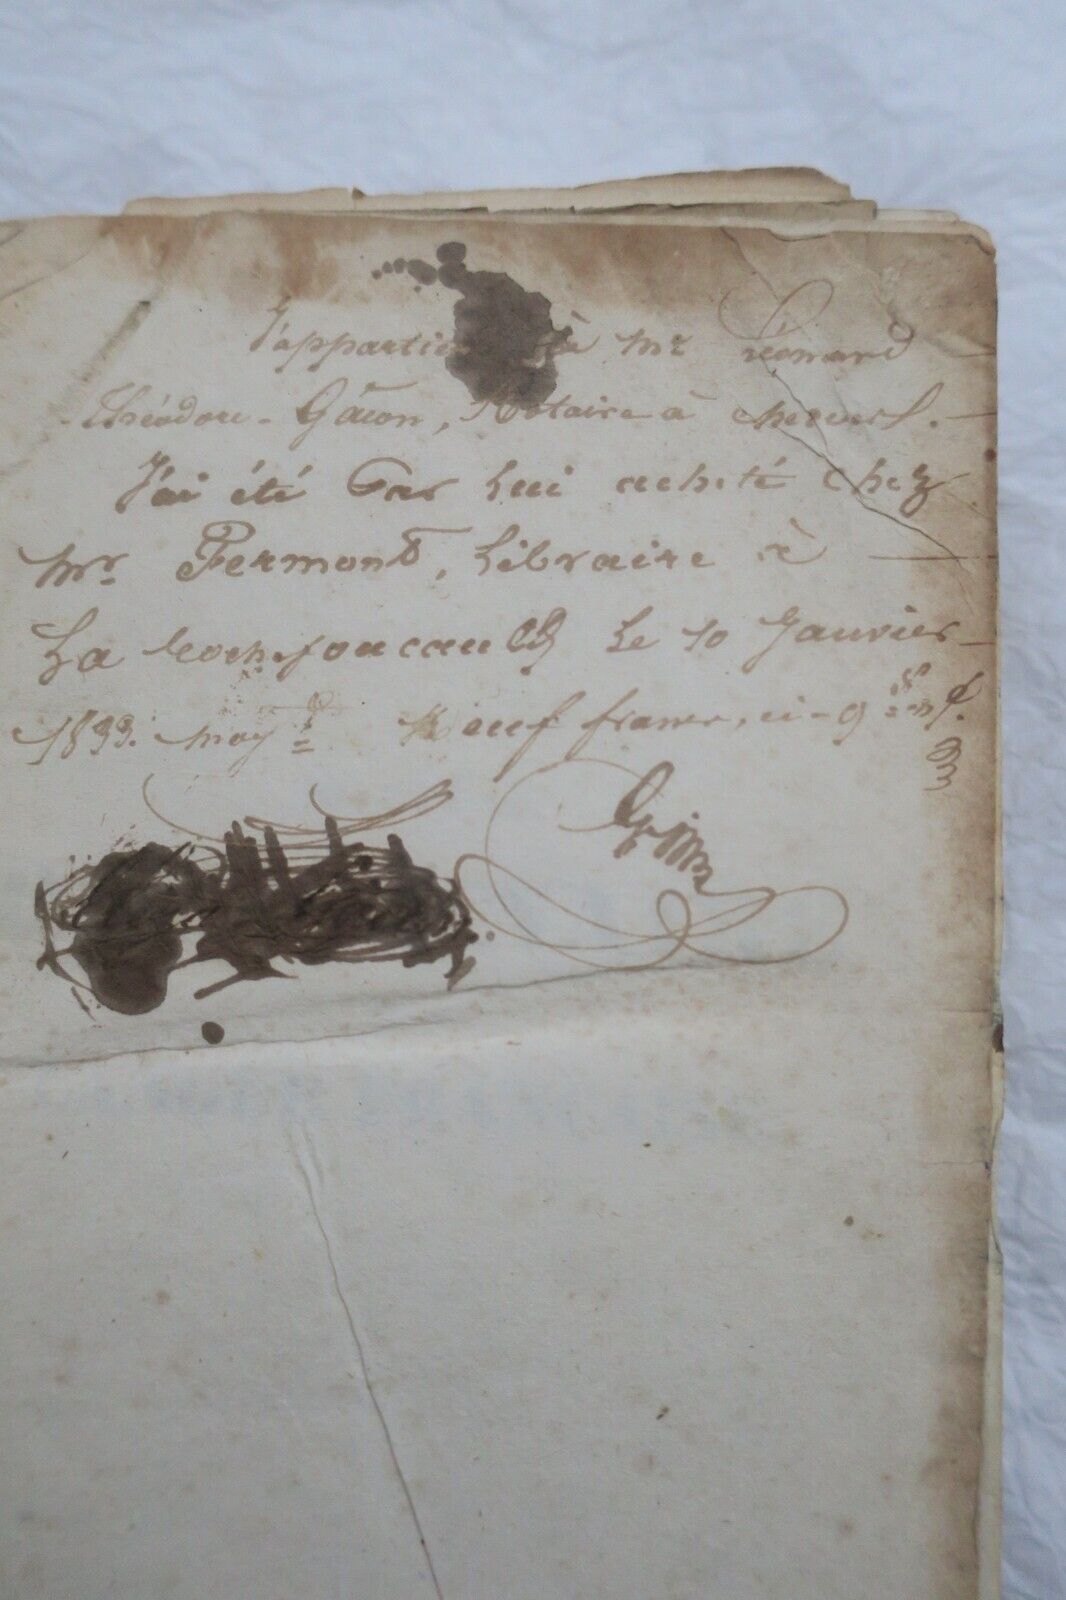 J'appartiens à Mr Léonard
Théodore - Gâcon, Notaire à
J'ai été Par Lui acheté Chez
Mr Fermond, Libraire à
La Rochefoucauld Le 10 Janvier
1833. moyt Neuf francs, ci - 9